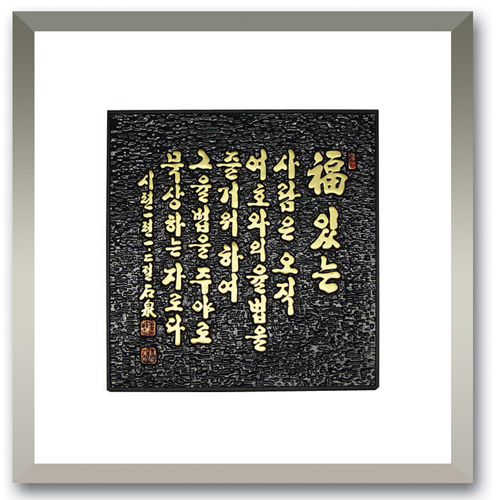 福 있는
사람은 오직
여호와의 율법을
즐거워 하여
그 율법을 주야로
묵상하는 자로다
시편 一편 一二절 石泉